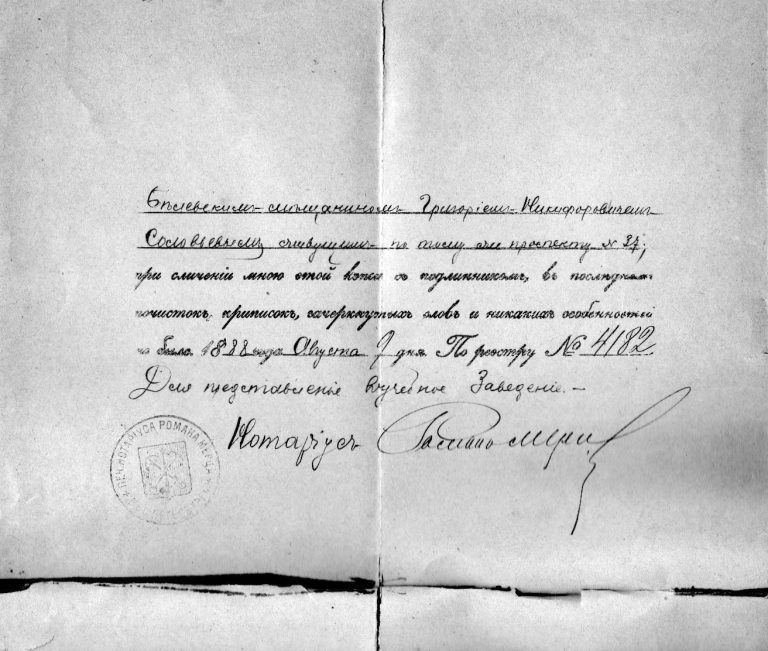 Бѣлевскимъ мѣщаниномъ Григоріемъ Никифоровичемъ
Соловьевымъ, живущимъ по проспекту № 37,
при сличеніи мною этой копіи съ подлинникомъ, въ послѣднемъ
почистокъ, приписокъ, зачеркнутыхъ словъ и никакихъ особенностей
не было 1888 года Августа 9 дня. По реестру № 4182
Для представленія въ учебное Заведеніе.—
Нотаріусъ
ПЕЧ. НОТАРІУСА РОМАНА